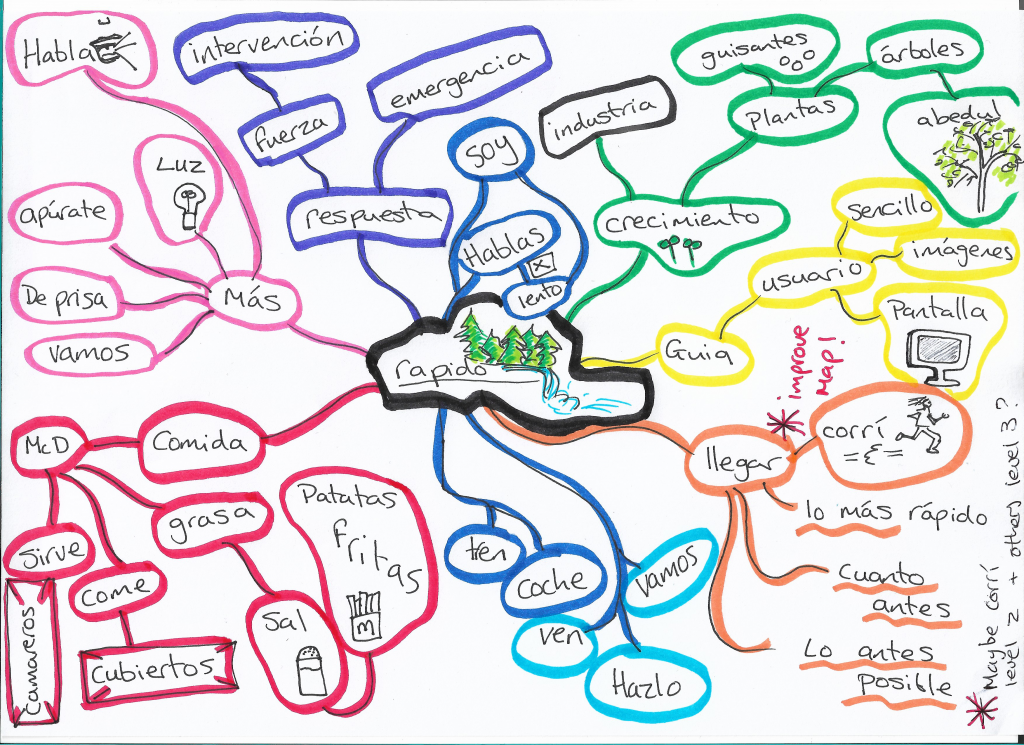 Habla
intervención
emergencia
fuerza
respuesta
Soy
Hablas
x
lento
industria
guisantes
árboles
Plantas
abedul
crecimiento
sencillo
imágenes
usuario
Pantalla
Guia
Luz
apúrate
De prisa
vamos
Más
rapido
* improve
Map!
llegar
corrí
lo más rápido
cuanto
antes
Lo antes
posible
* Maybe corrí
level 2 + others level 3?
Comida
McD
sirve
Camareros
come
Cubiertos
grasa
Sal
Patatas
fritas
m
tren
coche
vamos
ven
Hazlo